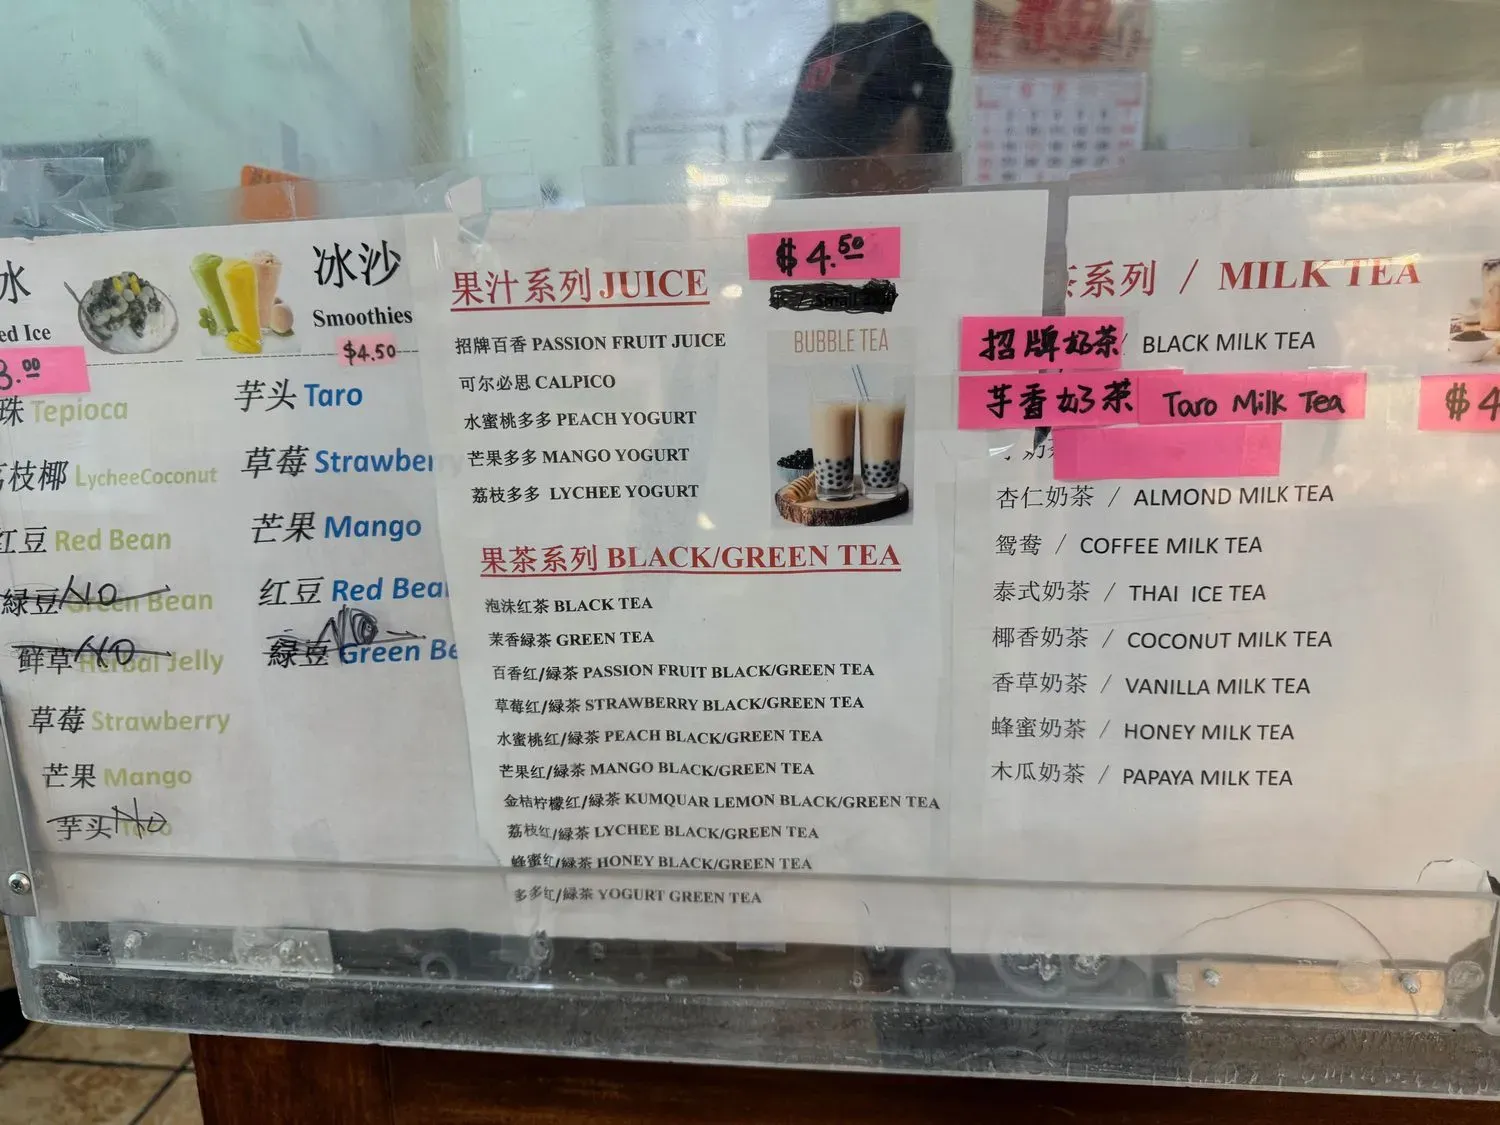 冰
ed Ice
3.00
珠 Tepioca
荔枝椰 LycheeCoconut
红豆 Red Bean
綠豆 Green Bean NO
鲜草 Herbal Jelly NO
草莓 Strawberry
芒果 Mango
芋头 Taro No
冰沙
Smoothies
$4.50
芋头 Taro
草莓 Strawber
芒果 Mango
红豆 Red Bea
綠豆 Green Be NO
果汁系列 JUICE
$4.50
Small
招牌百香 PASSION FRUIT JUICE
可尔必思 CALPICO
水蜜桃多多 PEACH YOGURT
芒果多多 MANGO YOGURT
荔枝多多 LYCHEE YOGURT
BUBBLE TEA
果茶系列 BLACK/GREEN TEA
泡沫红茶 BLACK TEA
茉香緑茶 GREEN TEA
百香红/緑茶 PASSION FRUIT BLACK/GREEN TEA
草莓红/緑茶 STRAWBERRY BLACK/GREEN TEA
水蜜桃红/緑茶 PEACH BLACK/GREEN TEA
芒果红/緑茶 MANGO BLACK/GREEN TEA
金桔柠檬红/緑茶 KUMQUAR LEMON BLACK/GREEN TEA
荔枝红/緑茶 LYCHEE BLACK/GREEN TEA
蜂蜜红/緑茶 HONEY BLACK/GREEN TEA
多多红/緑茶 YOGURT GREEN TEA
茶系列 / MILK TEA
招牌奶茶 / BLACK MILK TEA
芋香奶茶 Taro Milk Tea $4
杏仁奶茶 / ALMOND MILK TEA
鸳鸯 / COFFEE MILK TEA
泰式奶茶 / THAI ICE TEA
椰香奶茶 / COCONUT MILK TEA
香草奶茶 / VANILLA MILK TEA
蜂蜜奶茶 / HONEY MILK TEA
木瓜奶茶 / PAPAYA MILK TEA